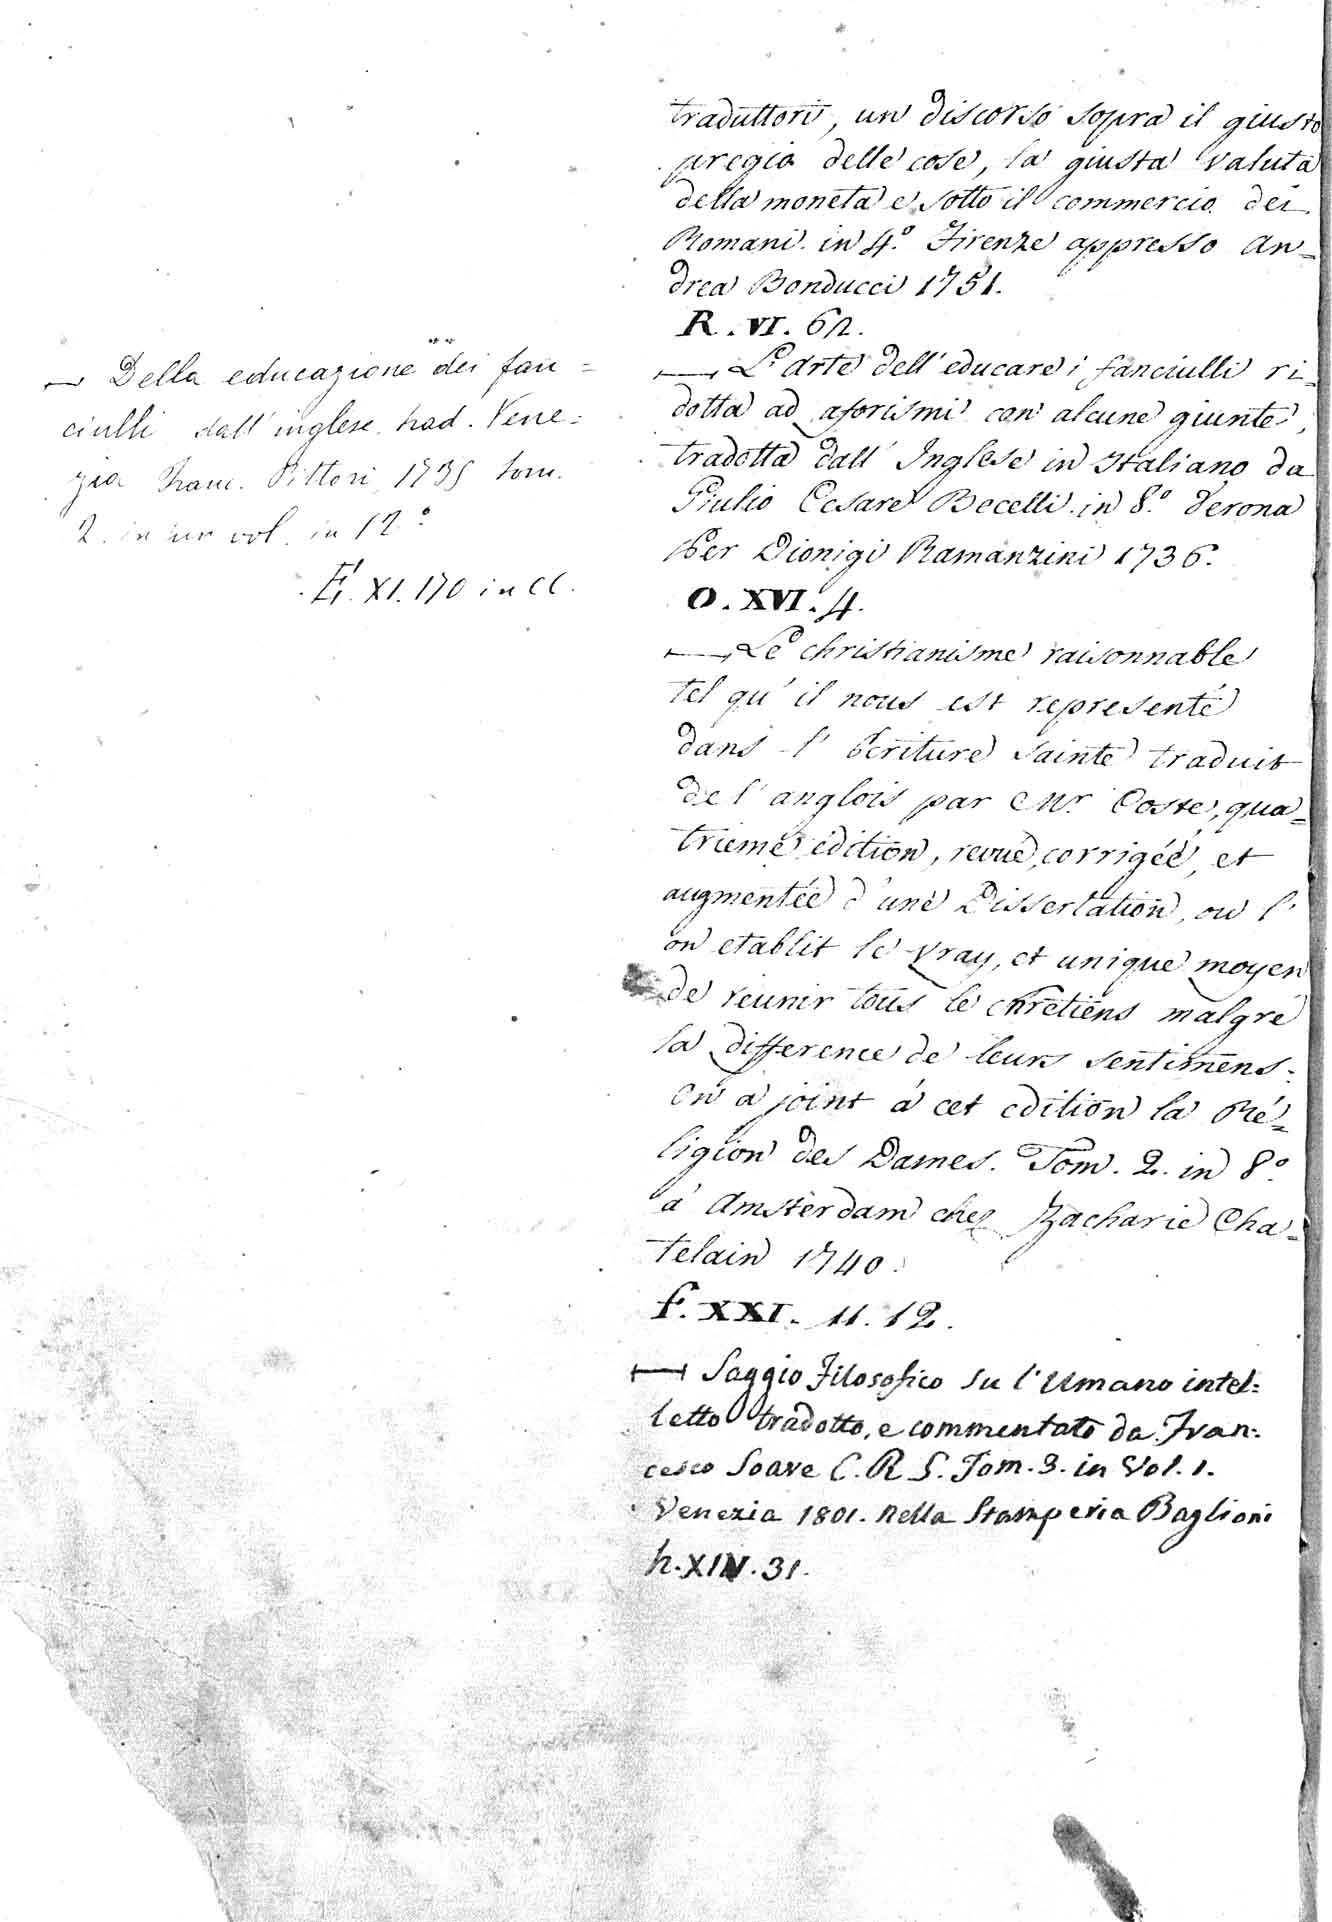 traduttori, un discorso sopra il giusto
pregio delle cose, la giusta valuta
della moneta e sotto il commercio dei
Romani. in 4.º Firenze appresso An=
drea Bonducci 1751.
R. VI. 62.
— L'arte dell'educare i fanciulli ri=
dotta ad aforismi con alcune giunte,
tradotta dall' Inglese in Italiano da
Giulio Cesare Becelli. in 8.º Verona
per Dionigi Ramanzini 1736.
O. XVI. 4.
— Le christianisme raisonnable
tel qu'il nous est representé
dans l'écriture sainte traduit
de l'anglois par Mr. Coste, qua=
trieme édition, revue, corrigéé, et
augmentée d'une Dissertation, ou l'
on etablit le vray, et unique moyen
de reunir tous le chretiens malgré
la difference de leurs sentimens:
on a joint á cet edition la Ré=
ligion des Dames. Tom. 2. in 8.º
á Amsterdam chez Zacharie Cha=
telain 1740.
f. XXI. 11. 12.
— Saggio Filosofico su l'Umano intel=
letto tradotto, e commentato da Fran=
cesco Soave C. R. S. Tom. 3. in Vol. 1.
Venezia 1801. nella Stamperia Baglioni
h. XIV. 31.
— Della educazione dei fan=
ciulli dall'inglese trad. Vene=
zia Franc. Pittori, 1735 tom.
2. in un vol. in 12º
E. XI. 170 in CC.